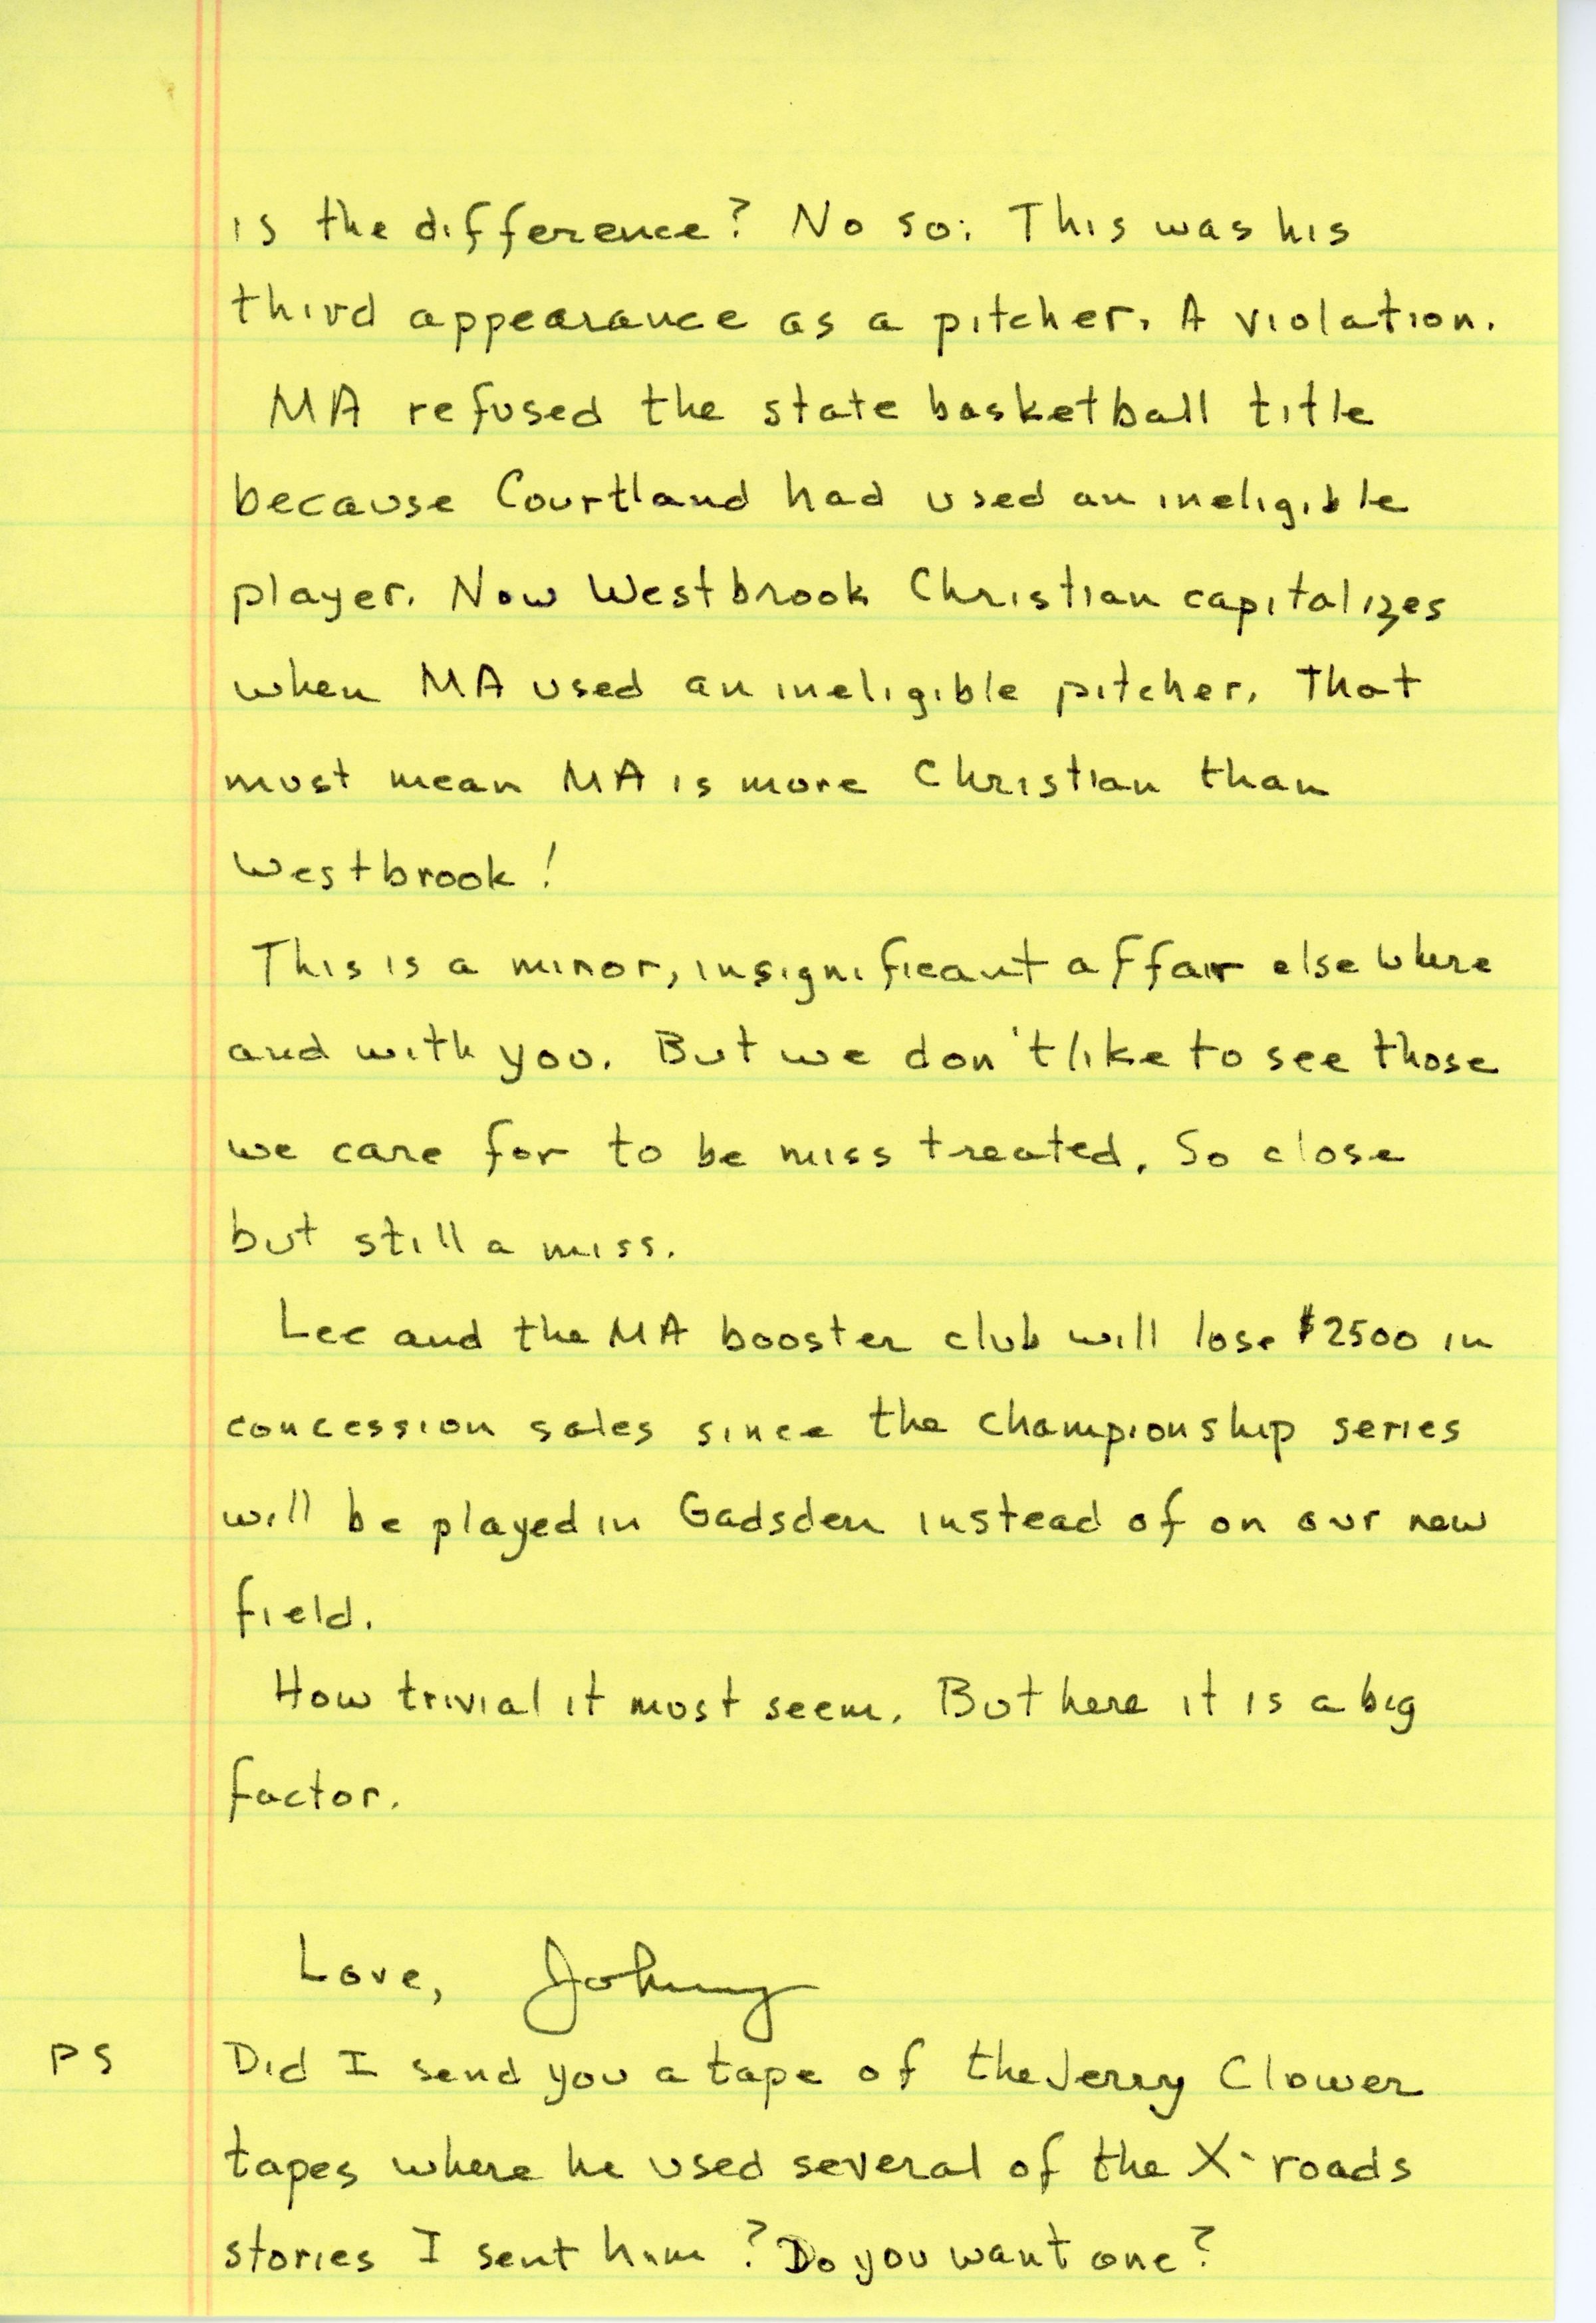 is the difference? No so: This was his
third appearance as a pitcher. A violation.
MA refused the state basketball title
because Courtland had used an ineligible
player. Now Westbrook Christian capitalizes
when MA used an ineligible pitcher. That
must mean MA is more Christian than
Westbrook!
This is a minor, insignificant affair elsewhere
and with you. But we don't like to see those
we care for to be miss treated. So close
but still a miss.
Lee and the MA booster club will lose $2500 in
concession sales since the championship series
will be played in Gadsden instead of on our new
field.
How trivial it must seem. But here it is a big
factor.
Love, Johnny
PS Did I send you a tape of the Jerry Clower
tapes where he used several of the X-roads
stories I sent him? Do you want one?